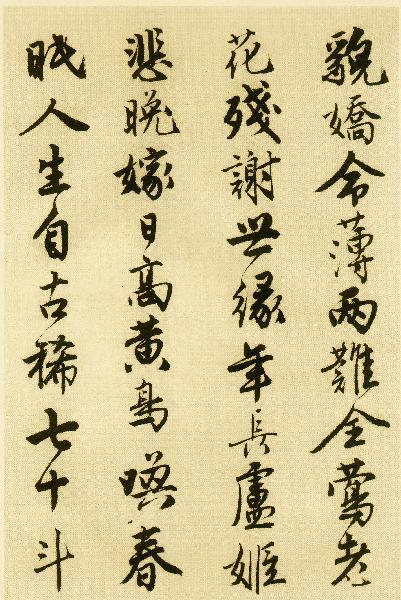 貌嬌命薄兩難全鶯老
花殘謝世緣年長盧姬
悲晚嫁日高黃鳥喚春
眠人生自古稀七十斗